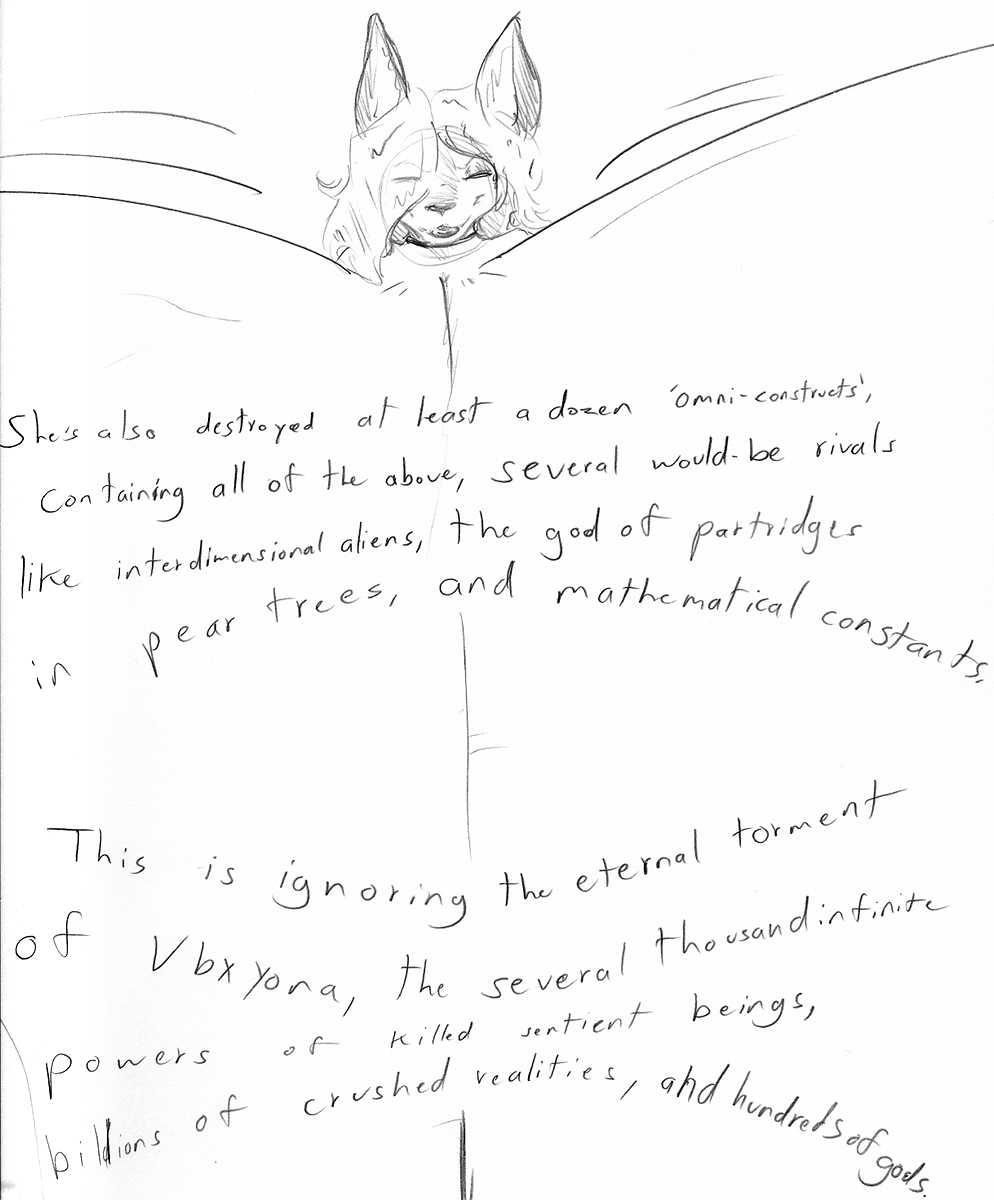 She's also destroyed at least a dozen 'omni-constructs',
containing all of the above, several would-be rivals
like interdimensional aliens, the god of partridges
in pear trees, and mathematical constants.
This is ignoring the eternal torment
of Vbxyona, the several thousand infinite
powers of killed sentient beings,
billions of crushed realities, and hundreds of gods.